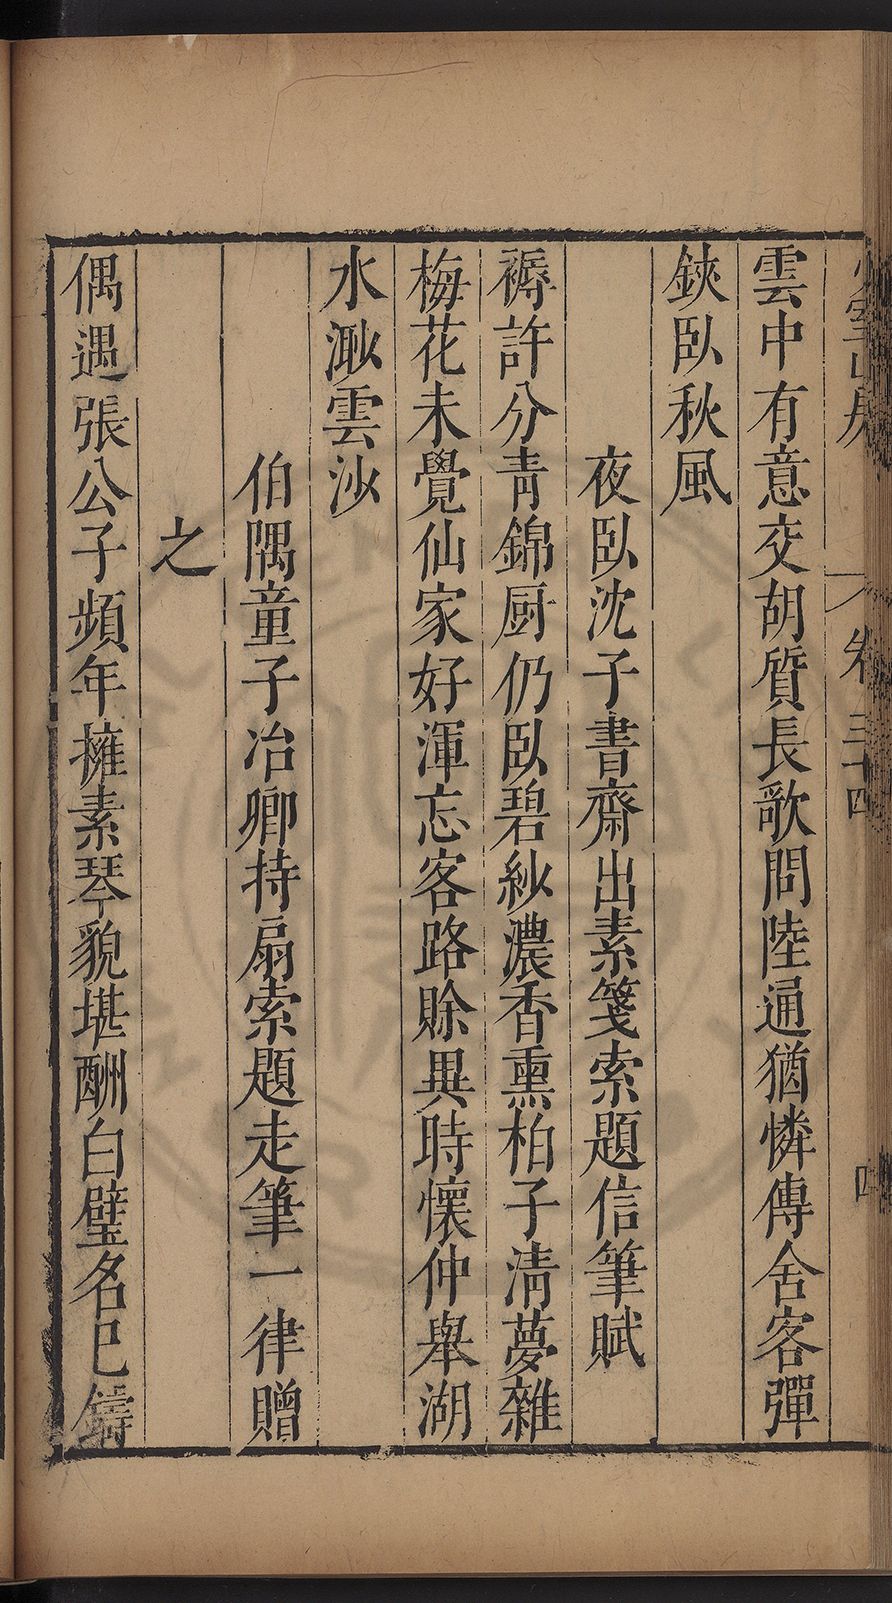 雲中有意交胡質長歌問陸通猶憐傳舍客彈
鋏臥秋風
夜臥沈子書齋出素箋索題信筆賦
褥許分青錦厨仍臥碧紗濃香熏柏子淸夢雜
梅花未覺仙家好渾忘客路賖異時懷仲舉湖
水渺雲沙
伯隅童子冶卿持扇索題走筆一律贈
之
偶遇張公子頻年擁素琴貌堪酬白璧名已鑄
卷三十四
四